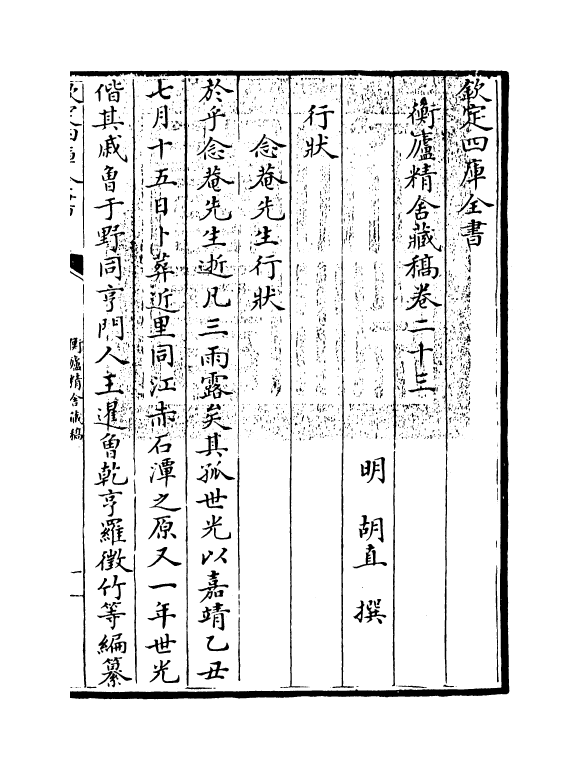 欽定四庫全書
衡廬精舍藏稿卷二十三
明 胡直 撰
行狀
念菴先生行狀
於乎念菴先生逝凡三雨露矣其孤世光以嘉靖乙丑
七月十五日卜葬近里同江赤石潭之原又一年世光
偕其戚魯于野同亨門人王暹曾乾亨羅徵竹等編纂
欽定四庫全書
衡廬精舍藏稿
一